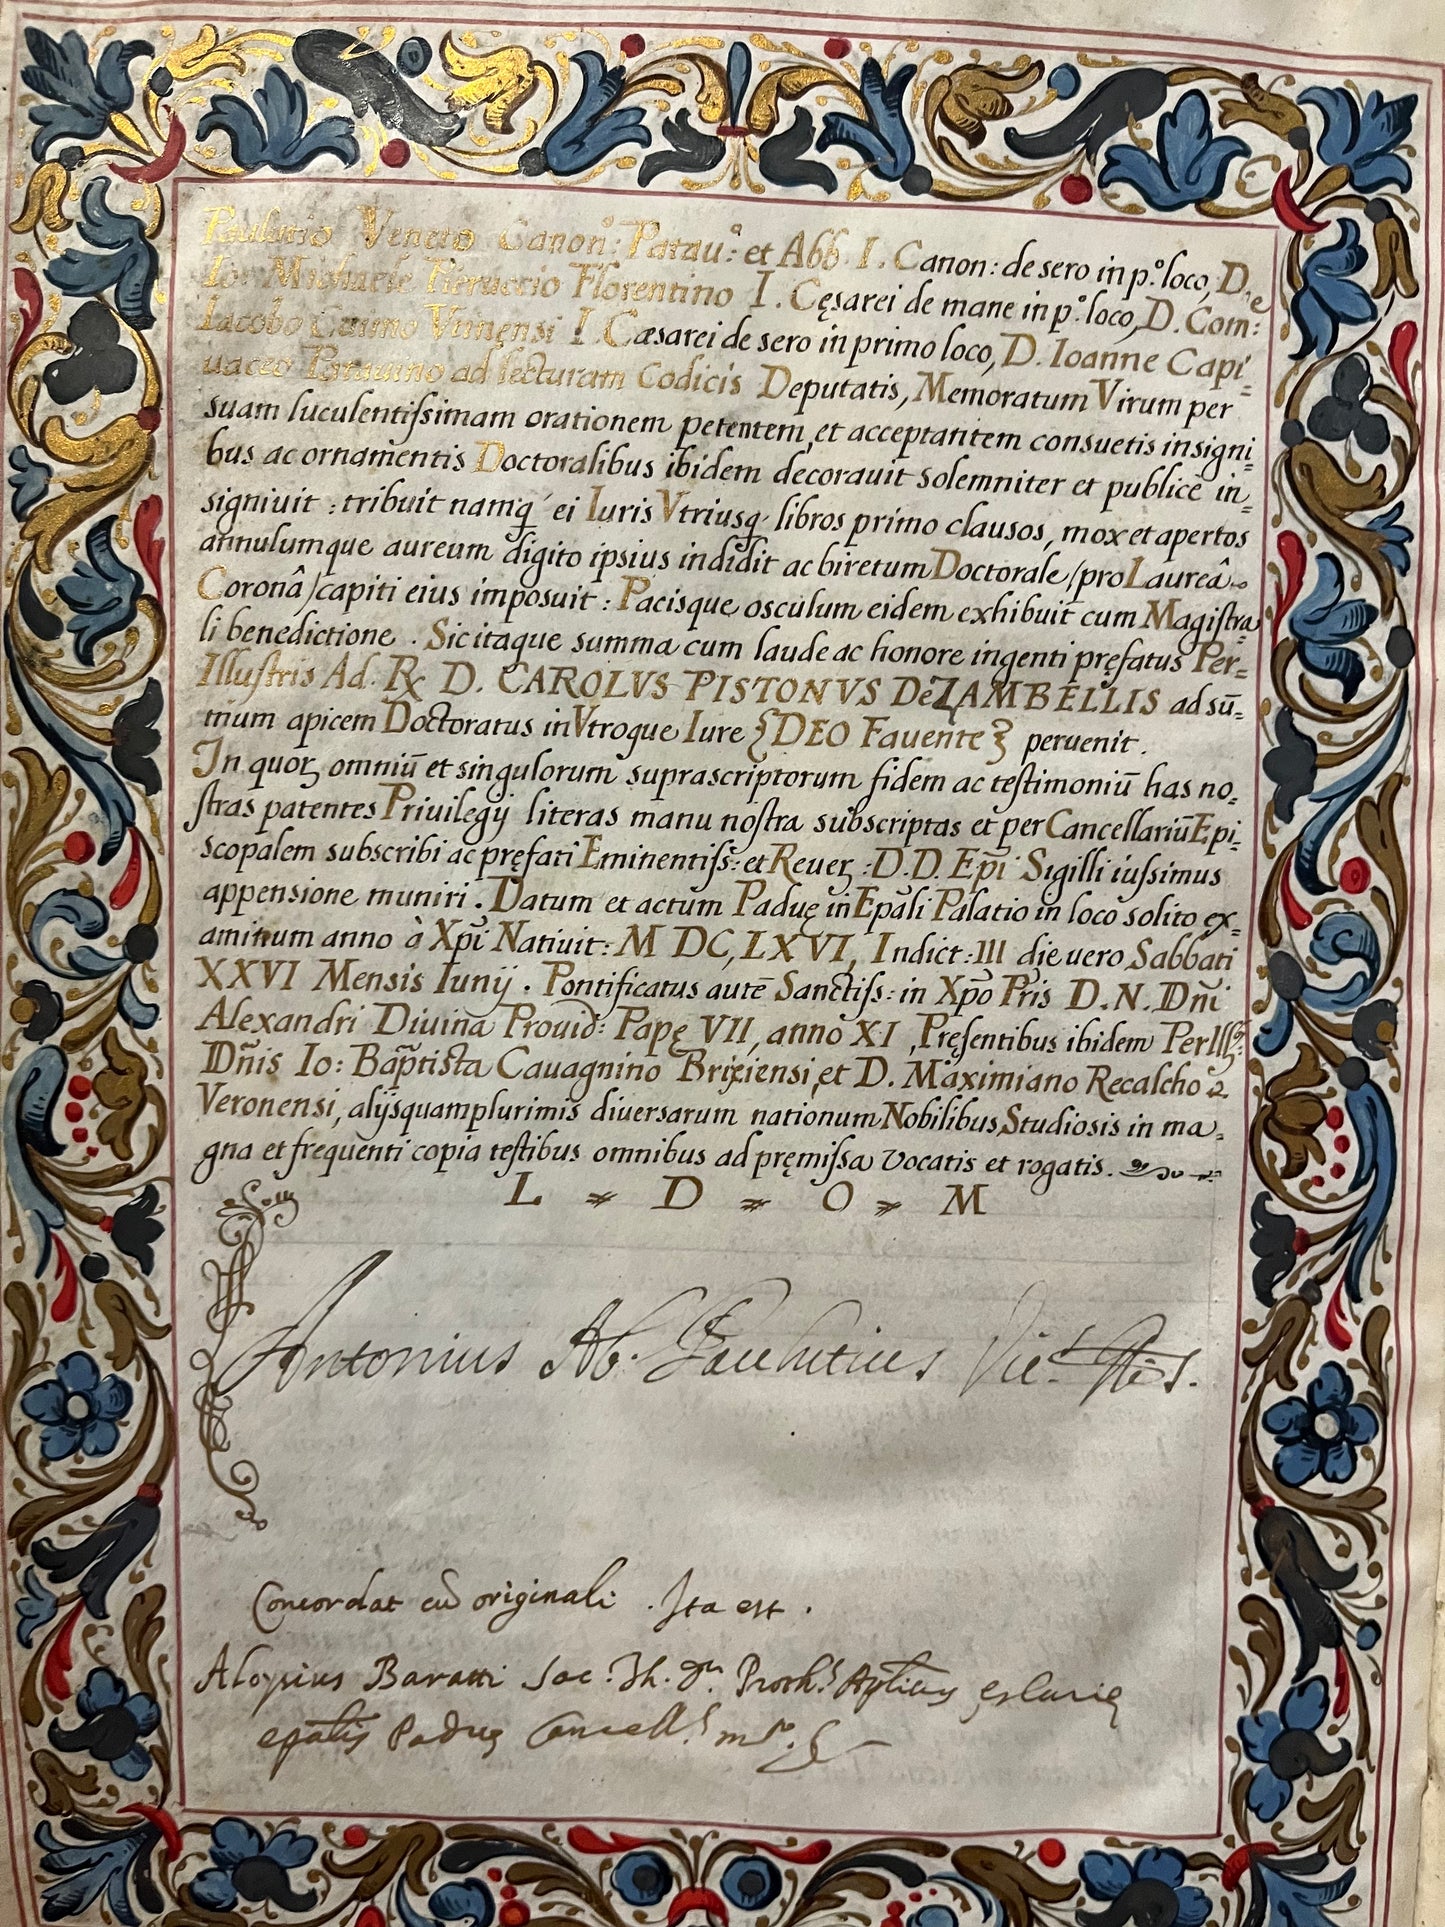 Veneto Canon: Patau: et Abb. I. Canon: de sero in p.º loco, D.
Io: Michaele Pieruccio Florentino I. Cęsarei de mane in p.º loco, D. Com:
Iacobo Caimo Vtinęnsi I. Cæsarei de sero in primo loco, D. Ioanne Capi-
uaceo Patauino ad lecturam Codicis Deputatis, Memoratum Virum per
suam luculentiſsimam orationem petentem, et acceptantem consuetis insigni-
bus ac ornamentis Doctoralibus ibidem decorauit solemniter et publicè in-
signiuit: tribuit namq́ ei Iuris Vtriusq́ libros primo clausos, mox et apertos
annulumque aureum digito ipsius indidit ac biretum Doctorale (pro Laureâ
Coronâ) capiti eius imposuit: Pacisque osculum eidem exhibuit cum Magiſtra-
li benedictione. Sic itaque summa cum laude ac honore ingenti pręfatus Per-
Illuſtris Ad. R. D. CAROLVS PISTONVS De ZAMBELLIS ad sū-
mum apicem Doctoratus in Vtroque Iure {DEO Fauente} peruenit.
In quoꝝ omniū et singulorum suprascriptorum fidem ac teſtimoniū has no-
ſtras patentes Priuilegij literas manu noſtra subscriptas et per Cancellariū Epi-
scopalem subscribi ac pręfati Eminentiſs: et Reueꝝ: D.D. Epi Sigilli iuſsimus
appensione muniri. Datum et actum Paduę in Epāli Palatio in loco solito ex-
aminum anno à Xpī Natiuit: M DC, LXVI, Indict: III die uero Sabbati
XXVI Mensis Iunij. Pontificatus autē Sanctiſs: in Xpō Pris D. N. Dñi
Alexandri Diuina Prouid: Papę VII, anno XI, Preſentibus ibidem PerIllꝝ:
Dñis Io: Baptista Cauagnino Brixiensi, et D. Maximiano Recalcho
Veronensi, alijsquamplurimis diuersarum nationum Nobilibus Studiosis in ma-
gna et frequenti copia teſtibus omnibus ad pręmiſsa vocatis et rogatis.
L D O M
Antonius Ab. Vic.
Concordat cū originali. Ita est.
Aloysius Baratti Sac. Th. Dr. Proth.
epālis Paduę Cancell.